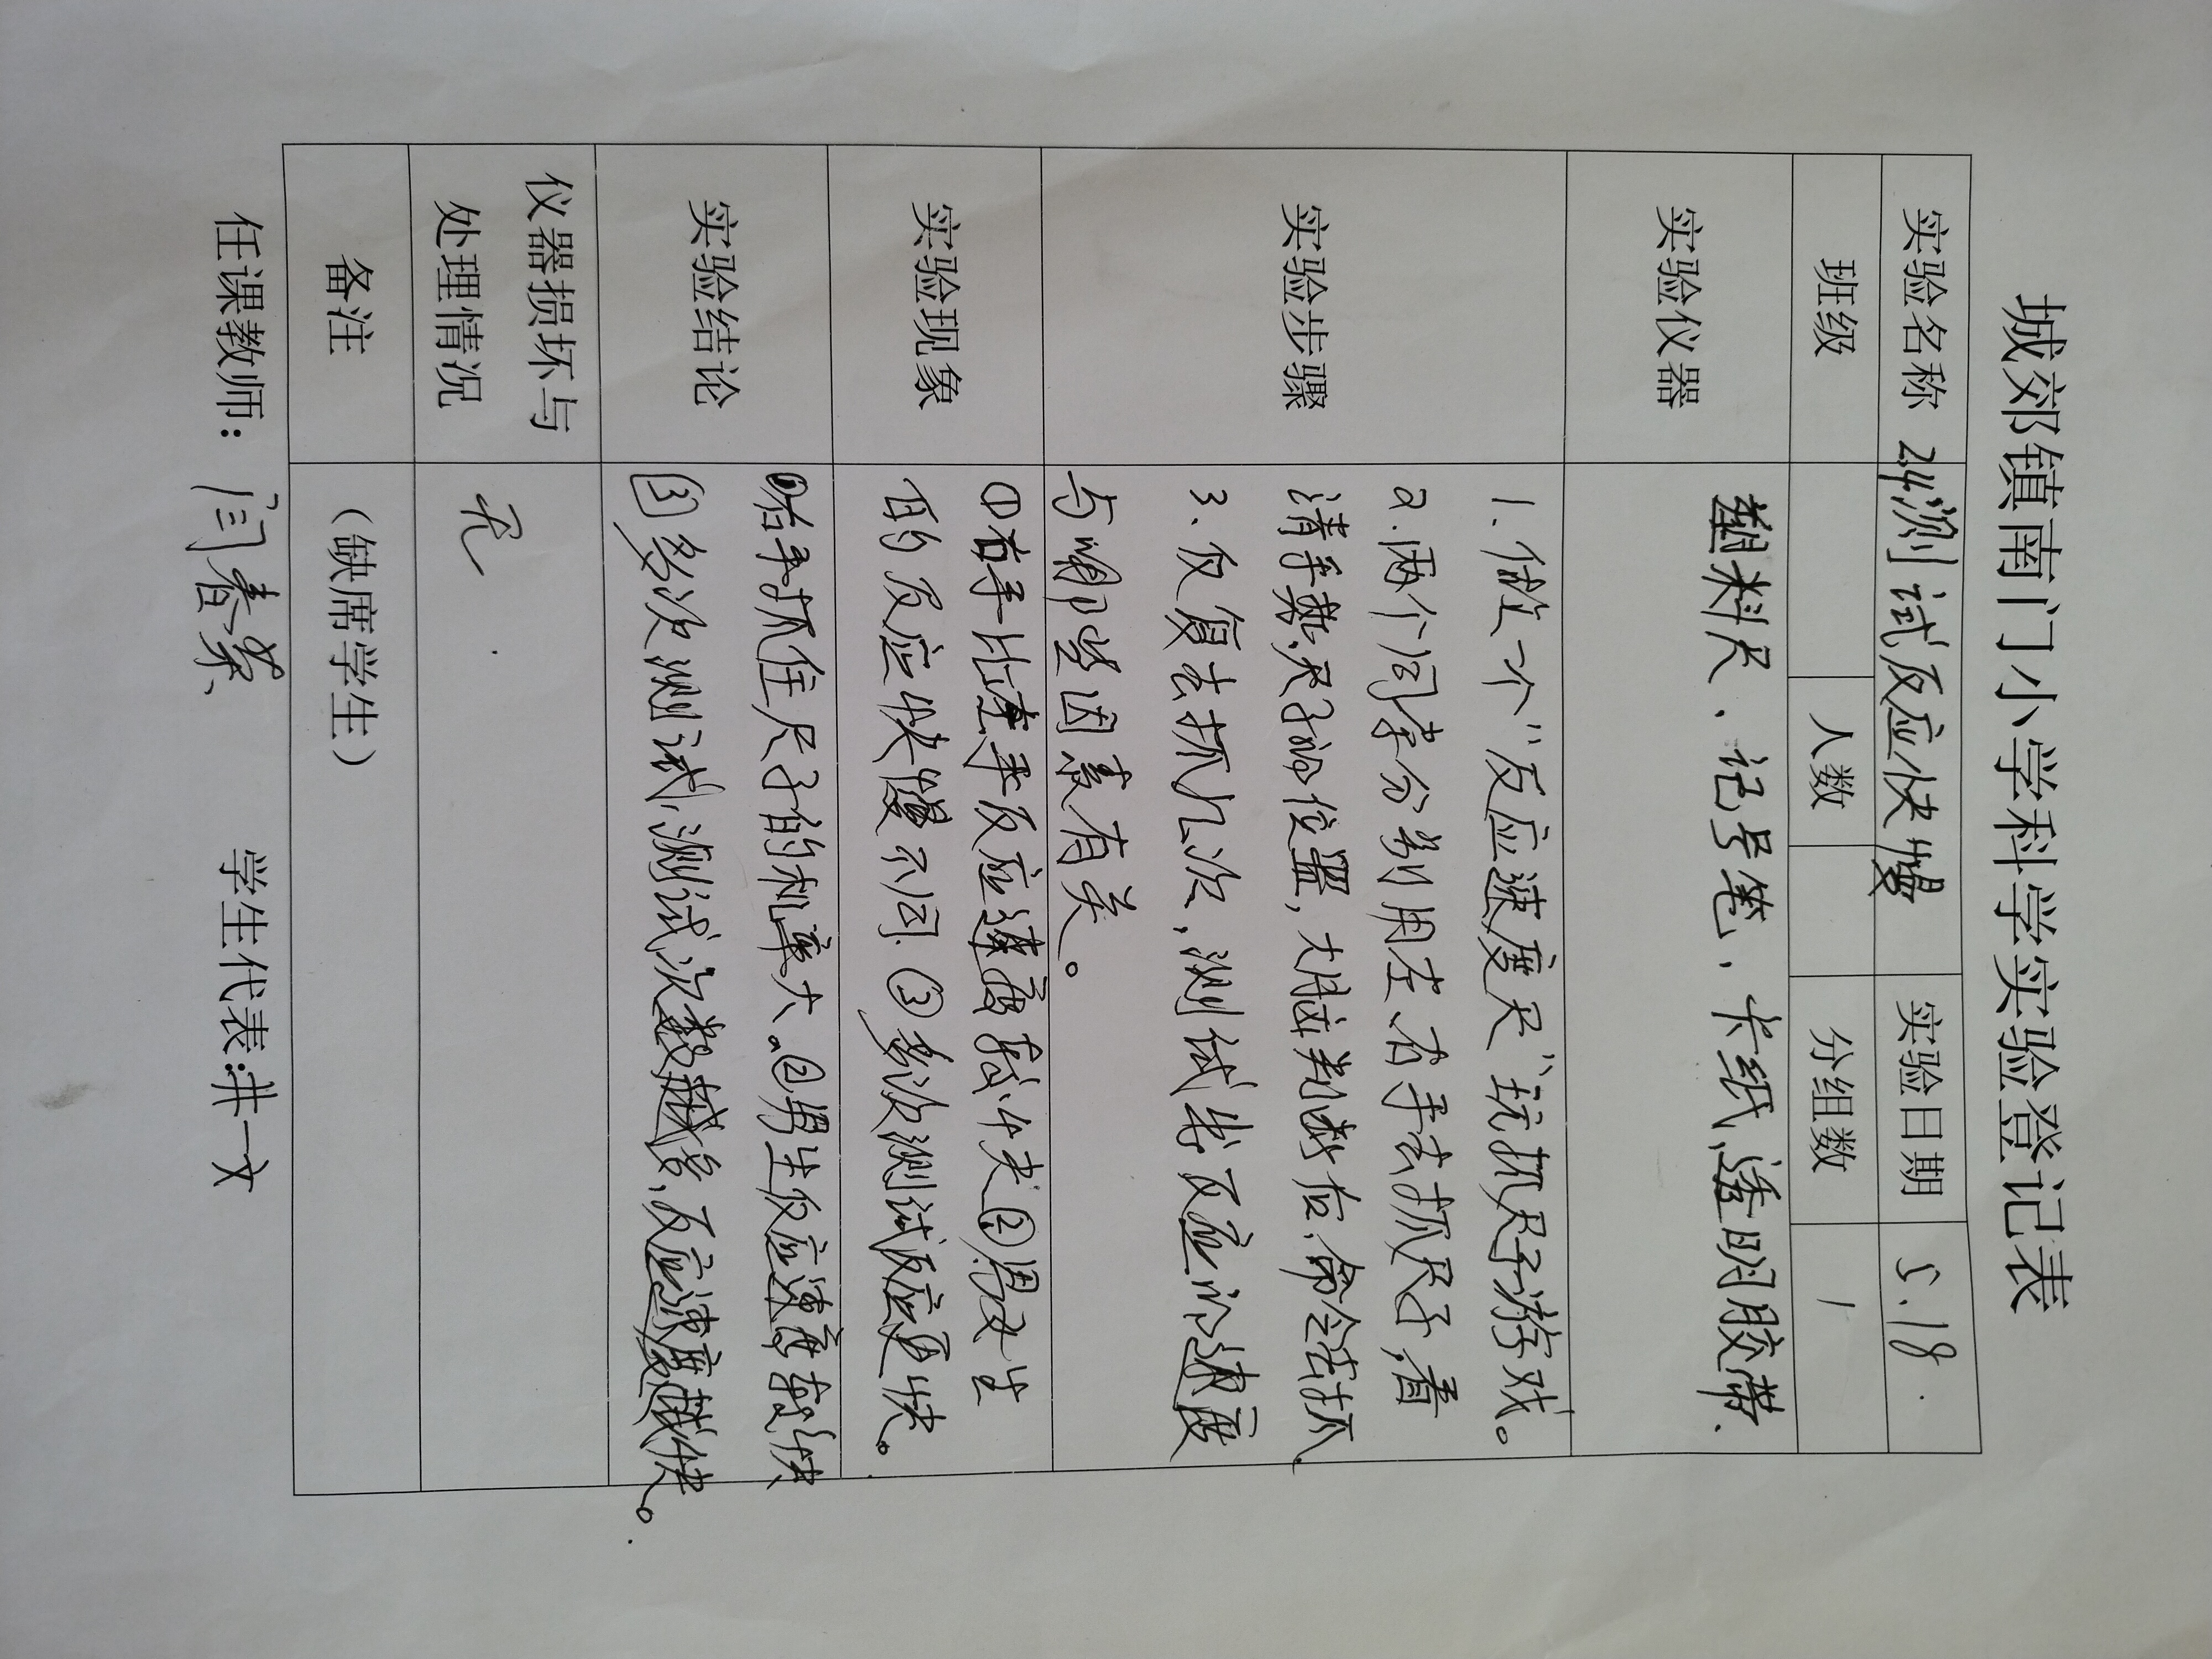 城郊镇南门小学科学实验登记表
实验名称 24测试反应快慢 实验日期 5.18.
班级 人数 分组数 1
实验仪器 塑料尺、记号笔、卡纸、透明胶带.
实验步骤
1.做一个“反应速度尺”玩抓尺子游戏。
2.两个同学分别用左右手去抓尺子,看
清手离尺子的位置,大脑判断后,命令去抓.
3.反复去抓几次,测试其反应的速度
与哪些因素有关。
实验现象
①右手比左手反应速度较快②男女生
的反应快慢不同.③多次测试反应更快。
实验结论
①右手抓住尺子的机率大。②男生反应速度较快
③多次测试,测试次数越多,反应速度越快。
仪器损坏与
处理情况 无
备注 (缺席学生)
任课教师: 闫春荣 学生代表: 一文